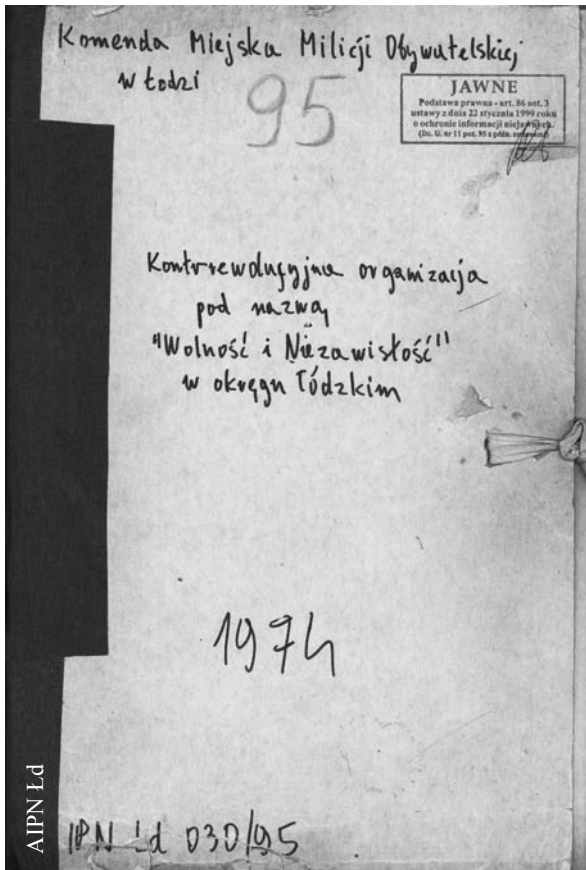 Komenda Miejska Milicji Obywatelskiej
w Łodzi
95
JAWNE
Podstawa prawna - art. 86 ust. 3
ustawy z dnia 22 stycznia 1999 roku
o ochronie informacji niejawnych.
(Dz. U. nr 11 poz. 95 z późn. zmianami)
Kontrrewolucyjna organizacja
pod nazwą
"Wolność i Niezawisłość"
w okręgu łódzkim
1974
IPN Ld 030/95
AIPN Łd